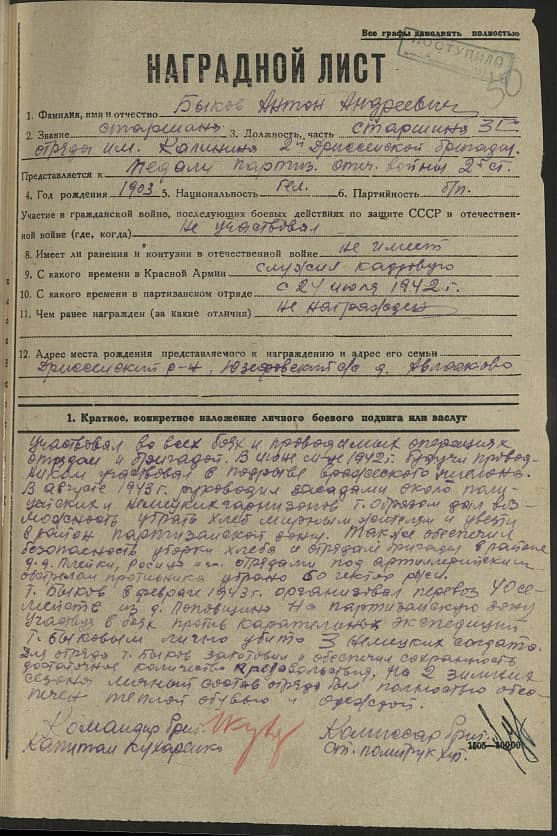 Все графы заполнять полностью
ПОСТУПИЛО
50
НАГРАДНОЙ ЛИСТ
1. Фамилия, имя и отчество Быков Антон Андреевич
2. Звание старшина 3. Должность, часть старшина 3
отряда им. Калинина 2й Дриссенской бригады.
Представляется к медали партиз. отеч. войны 2й ст.
4. Год рождения 1903 5. Национальность бел. 6. Партийность б/п.
Участие в гражданской войне, последующих боевых действиях по защите СССР в отечествен-
ной войне (где, когда) Не участвовал
8. Имеет ли ранения и контузии в отечественной войне не имеет
9. С какого времени в Красной Армии служил кадровую
10. С какого времени в партизанском отряде с 24 июля 1942 г.
11. Чем ранее награжден (за какие отличия) Не награжден
12. Адрес места рождения представляемого к награждению и адрес его семьи
Дриссенский р-н, Юзефовский с/с д.
1. Краткое, конкретное изложение личного боевого подвига или заслуг
Участвовал во всех боях и проводимых операциях
отрядом и бригадой. В м-це 1942 г. будучи провод-
ником участвовал в подрыве вражеского эшелона.
В августе 1943 г. руководил засадами около поли-
цейских и немецких гарнизонов т. образом дал воз-
можность убрать хлеб мирным жителям и увезти
в район партизанской зоны. Также обеспечил
безопасность уборки хлеба и отрядам бригады в районе
д.д. Росица и др. отрядами под артиллерийским
обстрелом противника убрано 60 гектар ржи.
Т. Быков в феврале 1943 г. организовал перевоз 40 се-
мейств из д. Поповщина на партизанскую зону
Участвуя в боях против карательных экспедиций
т. Быковым лично убито 3 немецких солдата.
Для отряда т. Быков заготовил и обеспечил сохранность
достаточное количество продовольствия. На 2 зимних
сезона личный состав отряда был полностью обес-
печен теплой обувью и одеждой.
Командир бриг. Комиссар бриг.
Капитан Кухаренко Ст. политрук